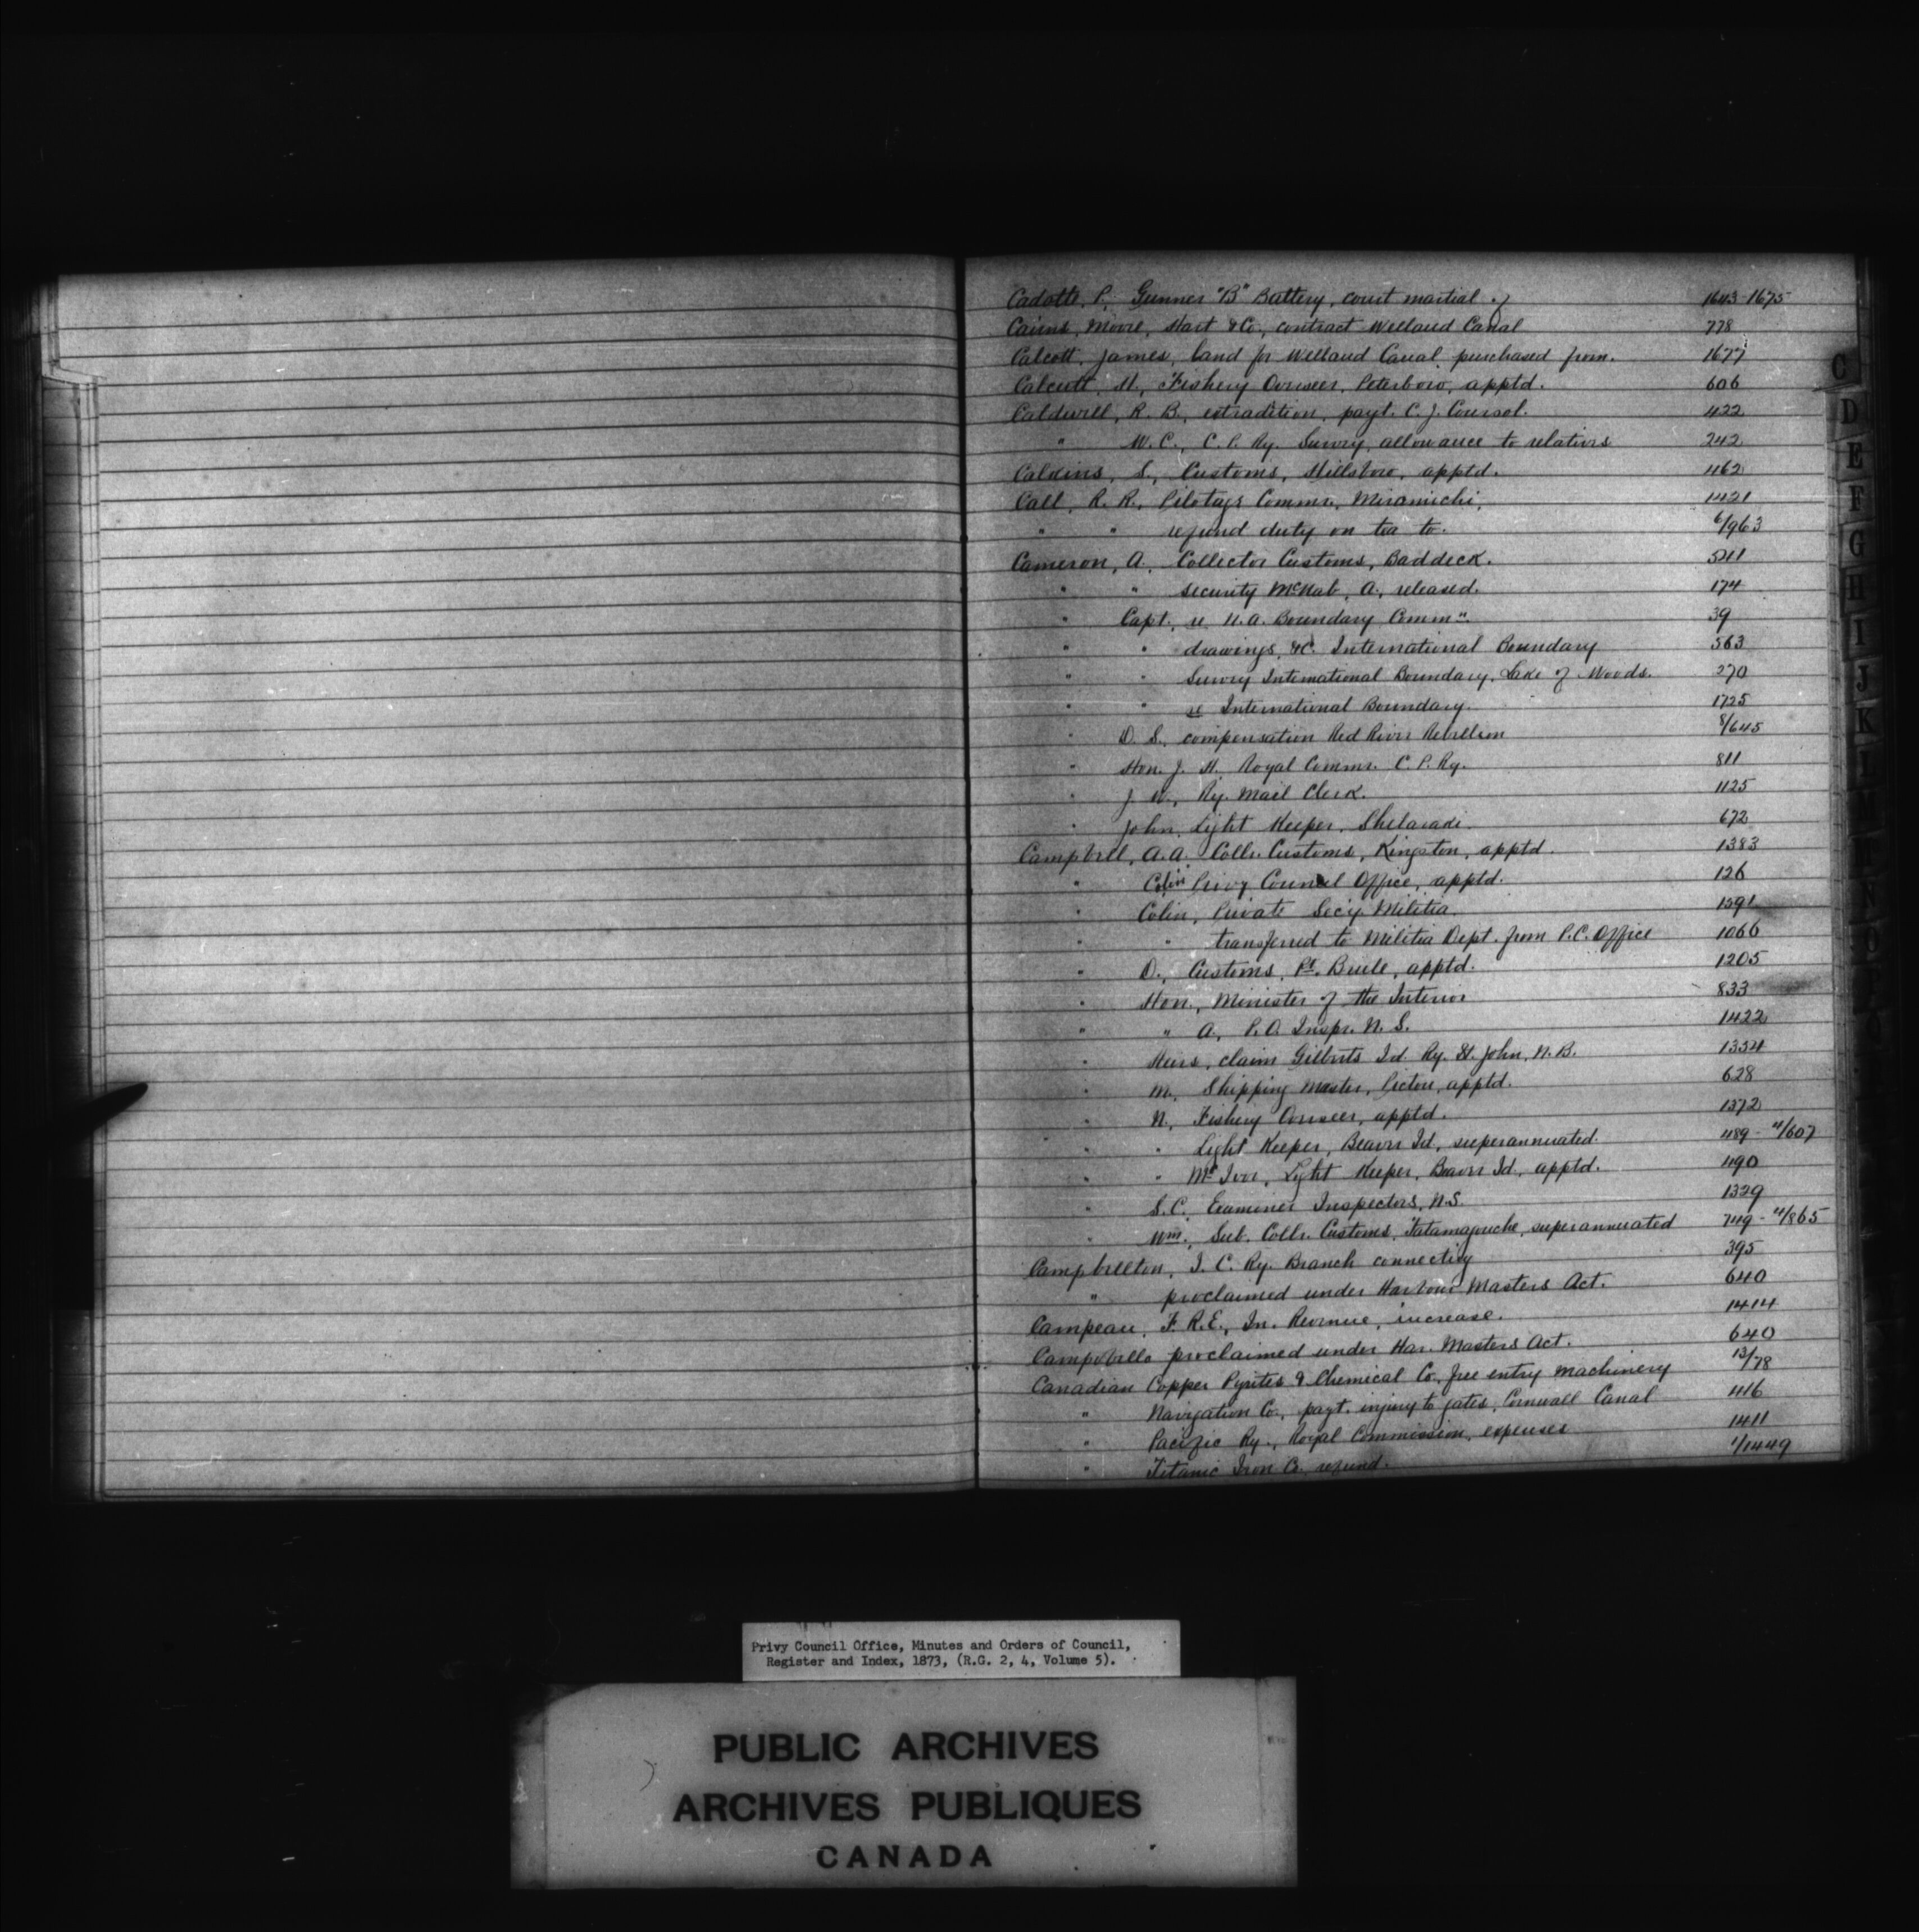 Cadotte, P., Gunner "B" Battery, court martial of 1643-1675
Cairns, Moore, Hart & Co., contract Welland Canal 778
Calcott, James, land for Welland Canal purchased from. 1677
Calcutt, H., Fishery Overseer, Peterboro, apptd. 606
Caldwell, R. B., extradition, payt. C. J. Coursol. 422
" W. C., C. P. Ry. Survey, allowance to relatives 242
Calkins, S., Customs, Hillsboro, apptd. 462
Call, R. R., Pilotage Commr. Miramichi, 1421
" " refund duty on tea to. 6/963
Cameron, A., Collector Customs, Baddeck. 541
" " security McNab, A., released. 174
" Capt., re N.A. Boundary Commn. 39
" " drawings, &c. International Boundary 563
" " Survey International Boundary, Lake of Woods. 270
" " re International Boundary. 1725
" D. S., compensation Red River Rebellion 8/645
" Hon. J. H. Royal Commr. C. P. Ry. 811
" J. W., Ry. Mail Clerk. 1125
" John, Light Keeper, 672
Campbell, A. A. Collr. Customs, Kingston, apptd. 1383
" Colin Privy Council Office, apptd. 126
" Colin, Private Sec'y. Militia. 1591
" " transferred to Militia Dept. from P.C. Office 1066
" D., Customs, Pt. Brule, apptd. 1205
" Hon., Minister of the Interior 833
" " A., P.O. Inspr. N. S. 1422
" Heirs, claim Gilberts Id. Ry. St. John, N.B. 1354
" M., Shipping Master, Pictou, apptd. 628
" N., Fishery Overseer, apptd. 1372
" " Light Keeper, Beaver Id., superannuated. 489 - 4/607
" " McIvor, Light Keeper, Beaver Id., apptd. 490
" S. C. Examiner Inspectors, N.S. 1329
" Wm., Sub. Collr. Customs, Tatamagouche, superannuated 749 - 4/865
Campbellton, I. C. Ry. Branch connecting 395
" proclaimed under Harbour Masters Act. 640
Campeau, F. R. E., In. Revenue, increase. 1414
Campobello proclaimed under Har. Masters Act. 640
Canadian Copper Pyrites & Chemical Co., free entry machinery 13/78
" Navigation Co., payt. injury to gates, Cornwall Canal 416
" Pacific Ry., Royal Commission, expenses 1411
" Titanic Iron Co. refund. 1/1449
C
D
E
F
G
H
I
J
K
Privy Council Office, Minutes and Orders of Council,
Register and Index, 1873, (R.G. 2, 4, Volume 5).
PUBLIC ARCHIVES
ARCHIVES PUBLIQUES
CANADA